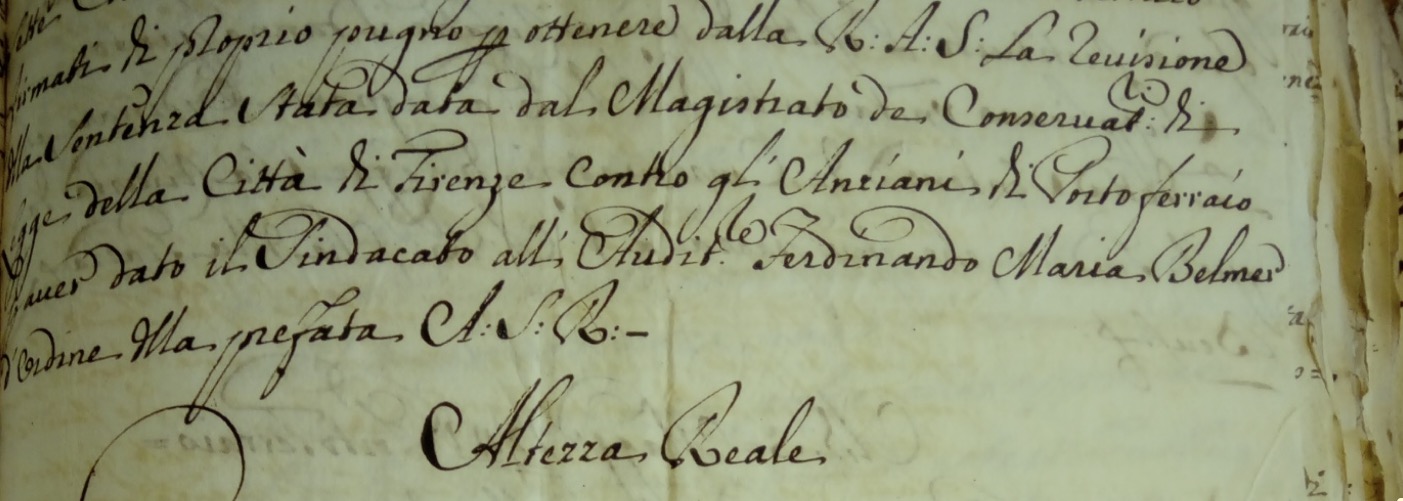 firmati di proprio pugno p ottenere dalla R: A: S: La Revisione
della Sentenza Stata data dal Magistrato de Conservat:i di
legge della Città di Firenze Contro gl' Anziani di Portoferraio
aver dato il Sindacato all' Audit:re Ferdinando Maria Belmer
d'ordine della prefata A: S: R:-
Altezza Reale